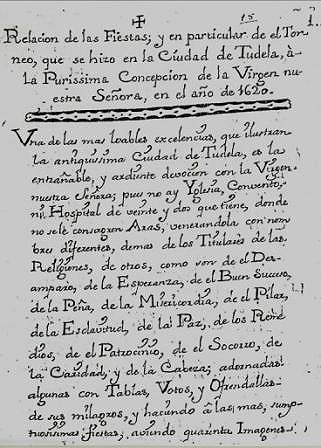 15
1.
Relacion de las Fiestas; y en particular de el Tor-
neo, que se hizo en la Ciudad de Tudela, à
La Purissima Concepcion de la Virgen nu-
estra Señora, en el año de 1620.
Vna de las mas loables excelencias, que ilustran
la antiquissima Ciudad de Tudela, es la
entrañable, y ardiente devocion con la Virgen
nuestra Señora; pues no ay Yglesia, Convento,
ni Hospital de veinte y dos que tiene, donde
no se le consagren Aras, venerandola con nom-
bres diferentes, demas de los Titulares de las
Religiones, de otros, como son de el Des-
amparo, de la Esperanza, de el Buen Suceso,
de la Peña, de la Misericordia, de el Pilar,
de la Esclavitud, de la Paz, de los Reme
dios, de el Patrocinio, de el Socorro, de
la Caridad, y de la Cabeza; adornadas
algunas con Tablas, Votos, y Ofrendas
de sus milagros, y haciendo à las mas, sump-
tuosissimas fiestas; aviendo quarenta Imagenes